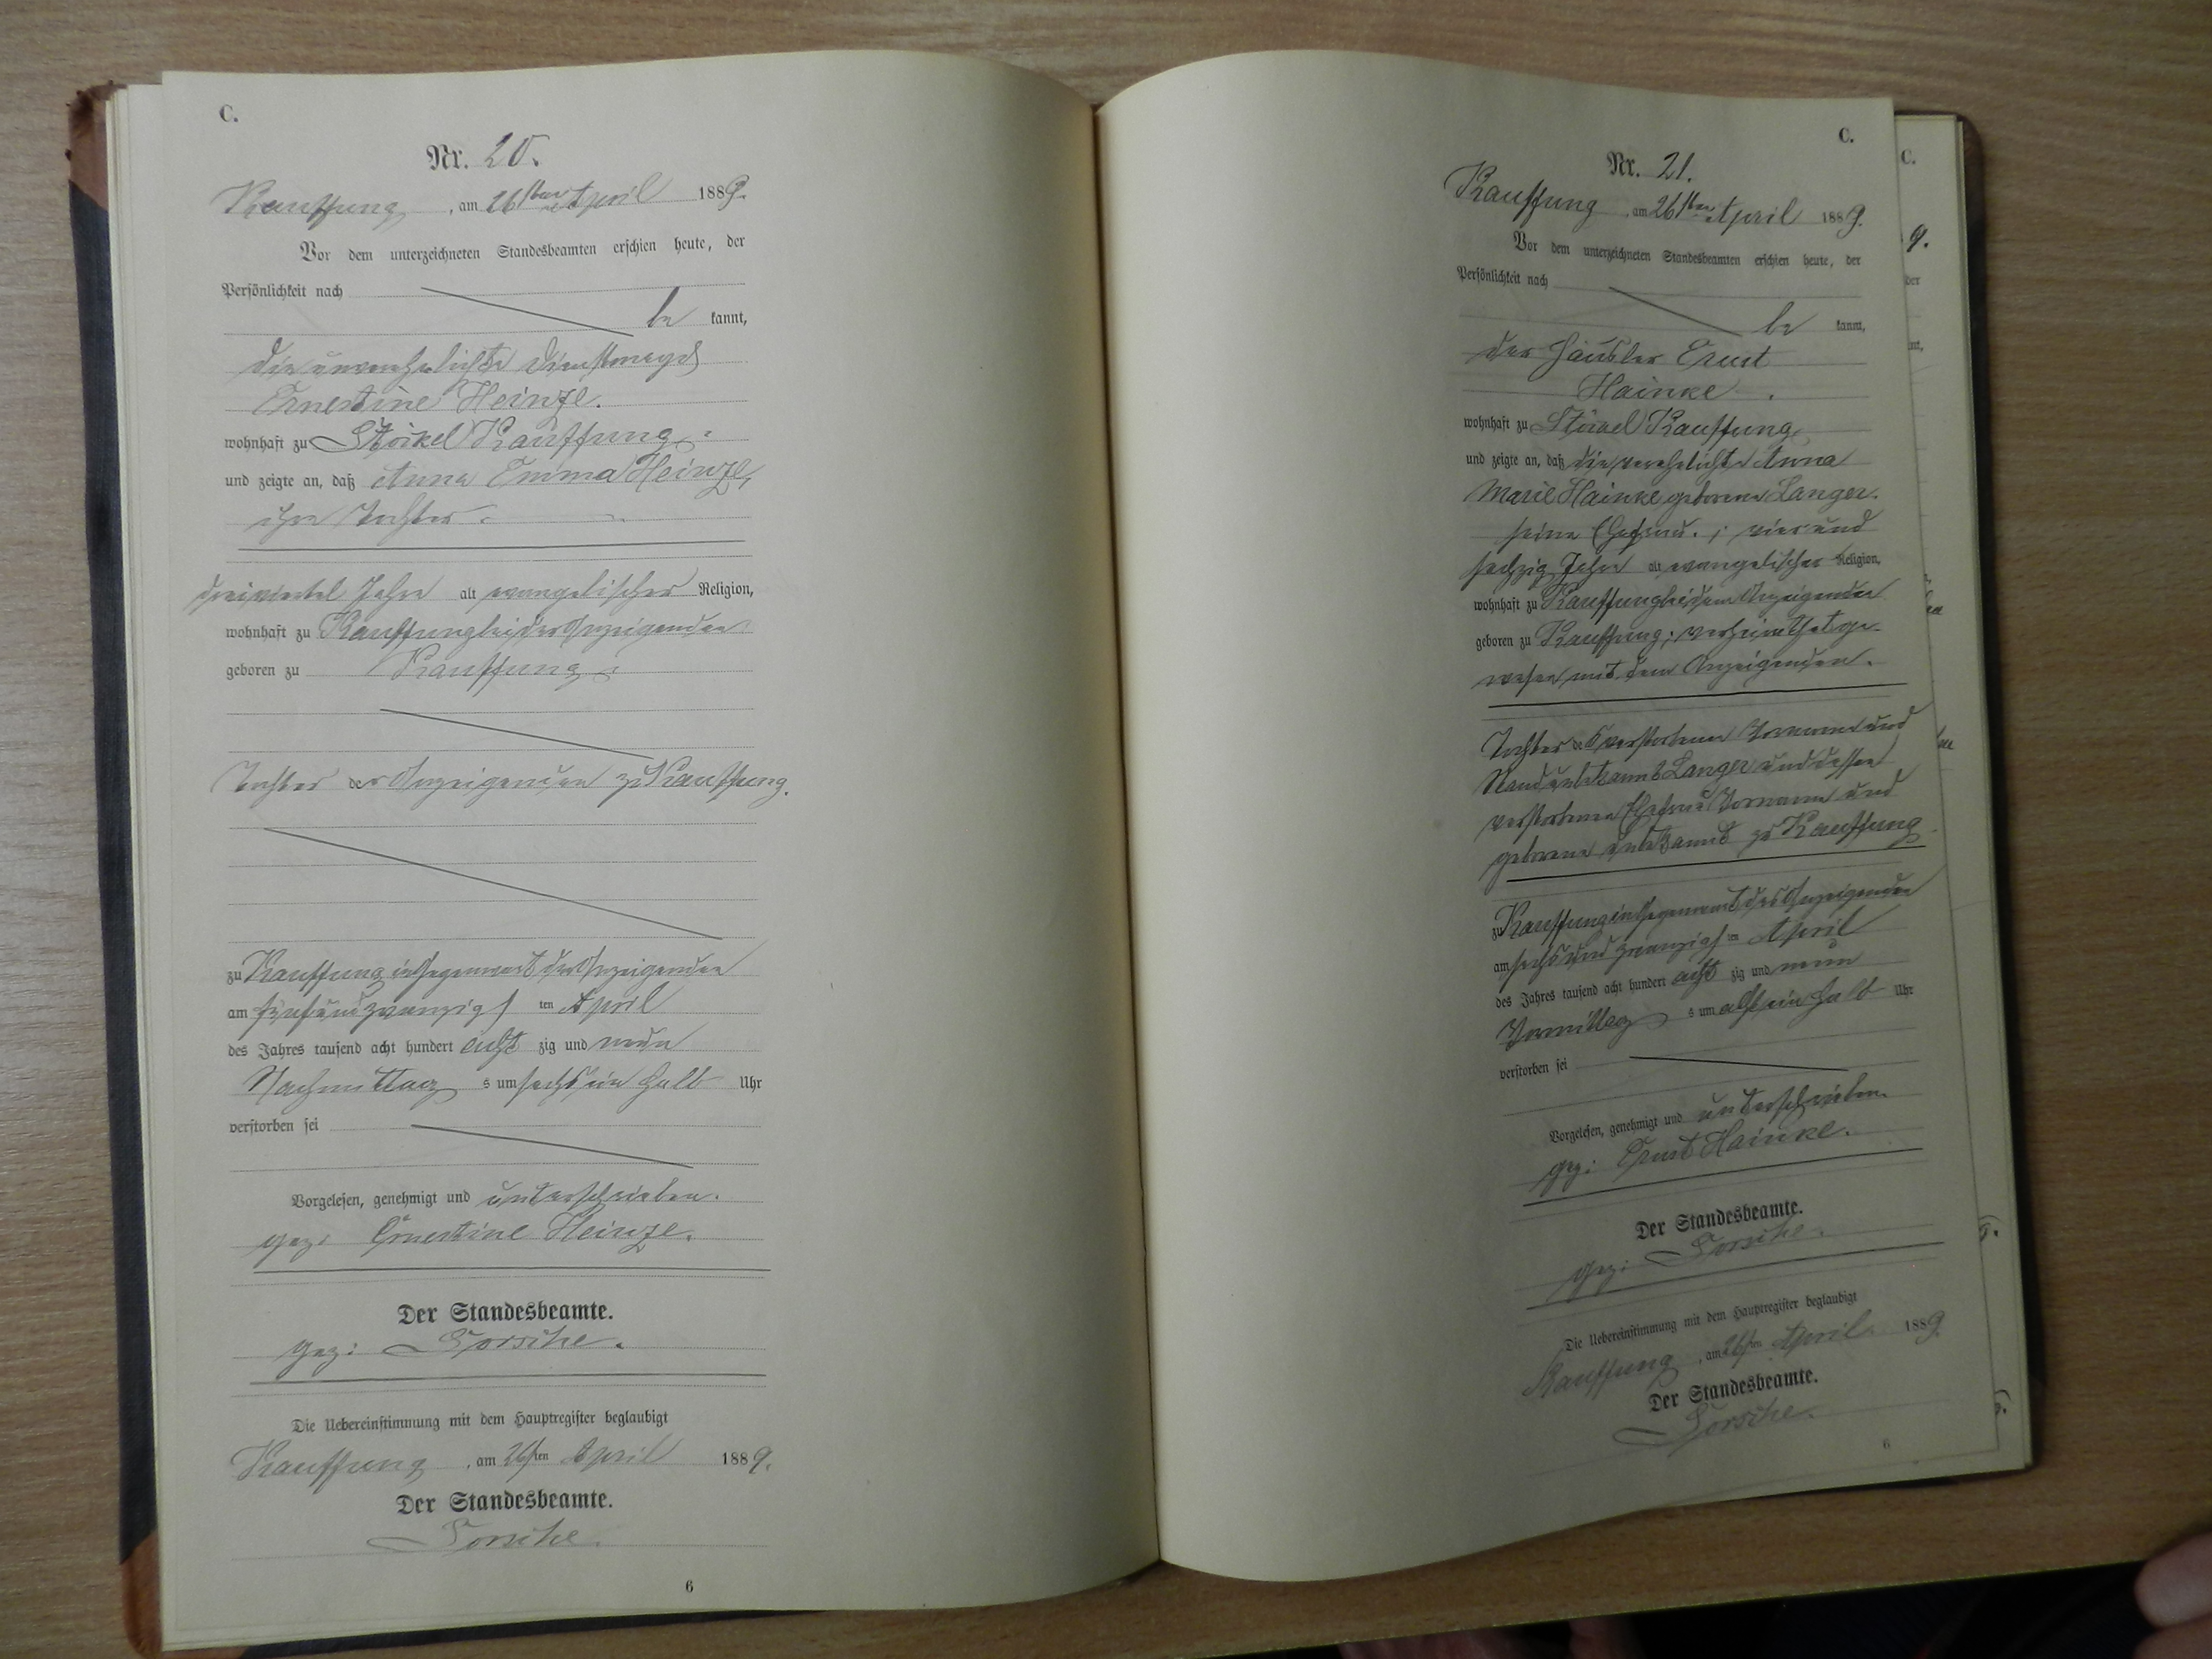 C.
Nr. 20.
Kauffung, am 26sten April 1889.
Vor dem unterzeichneten Standesbeamten erschien heute, der
Persönlichkeit nach
be kannt,
die unverehelichte Dienstmagd
Ernestine Heinze.
wohnhaft zu Stöckel Kauffung
und zeigte an, daß Anna Emma Heinze,
ihre Tochter
dreiviertel Jahre alt evangelischer Religion,
wohnhaft zu Kauffung bei der Anzeigenden
geboren zu Kauffung
Tochter der Anzeigenden zu Kauffung.
zu Kauffung in Gegenwart der Anzeigenden
am fünfundzwanzigs ten April
des Jahres tausend acht hundert acht zig und neun
Nachmittag s um sechs ein halb Uhr
verstorben sei
Vorgelesen, genehmigt und unterschrieben.
gez: Ernestine Heinze.
Der Standesbeamte.
gez:
Die Uebereinstimmung mit dem Hauptregister beglaubigt
Kauffung, am 26sten April 1889.
Der Standesbeamte.
6
C.
Nr. 21.
Kauffung, am 26sten April 1889.
Vor dem unterzeichneten Standesbeamten erschien heute, der
Persönlichkeit nach
be kannt,
der Häusler Ernst
Hainke.
wohnhaft zu Stöckel Kauffung
und zeigte an, daß die verehelichte Anna
Marie Hainke geborene Langer.
seine Ehefrau; vierund
sechzig Jahre alt evangelischer Religion,
wohnhaft zu Kauffung bei dem Anzeigenden
geboren zu Kauffung; verheirathet ge-
wesen mit dem Anzeigenden.
Tochter des verstorbenen Vorname und
Stand unbekannt Langer und dessen
verstorbenen Ehefrau Vorname und
geborene unbekannt zu Kauffung
zu Kauffung in Gegenwart des Anzeigenden
am sechsundzwanzigs ten April
des Jahres tausend acht hundert acht zig und neun
Vormittag s um acht ein halb Uhr
verstorben sei
Vorgelesen, genehmigt und unterschrieben.
gez: Ernst Hainke.
Der Standesbeamte.
gez:
Die Uebereinstimmung mit dem Hauptregister beglaubigt
Kauffung, am 26sten April 1889.
Der Standesbeamte.
6
C.
9.